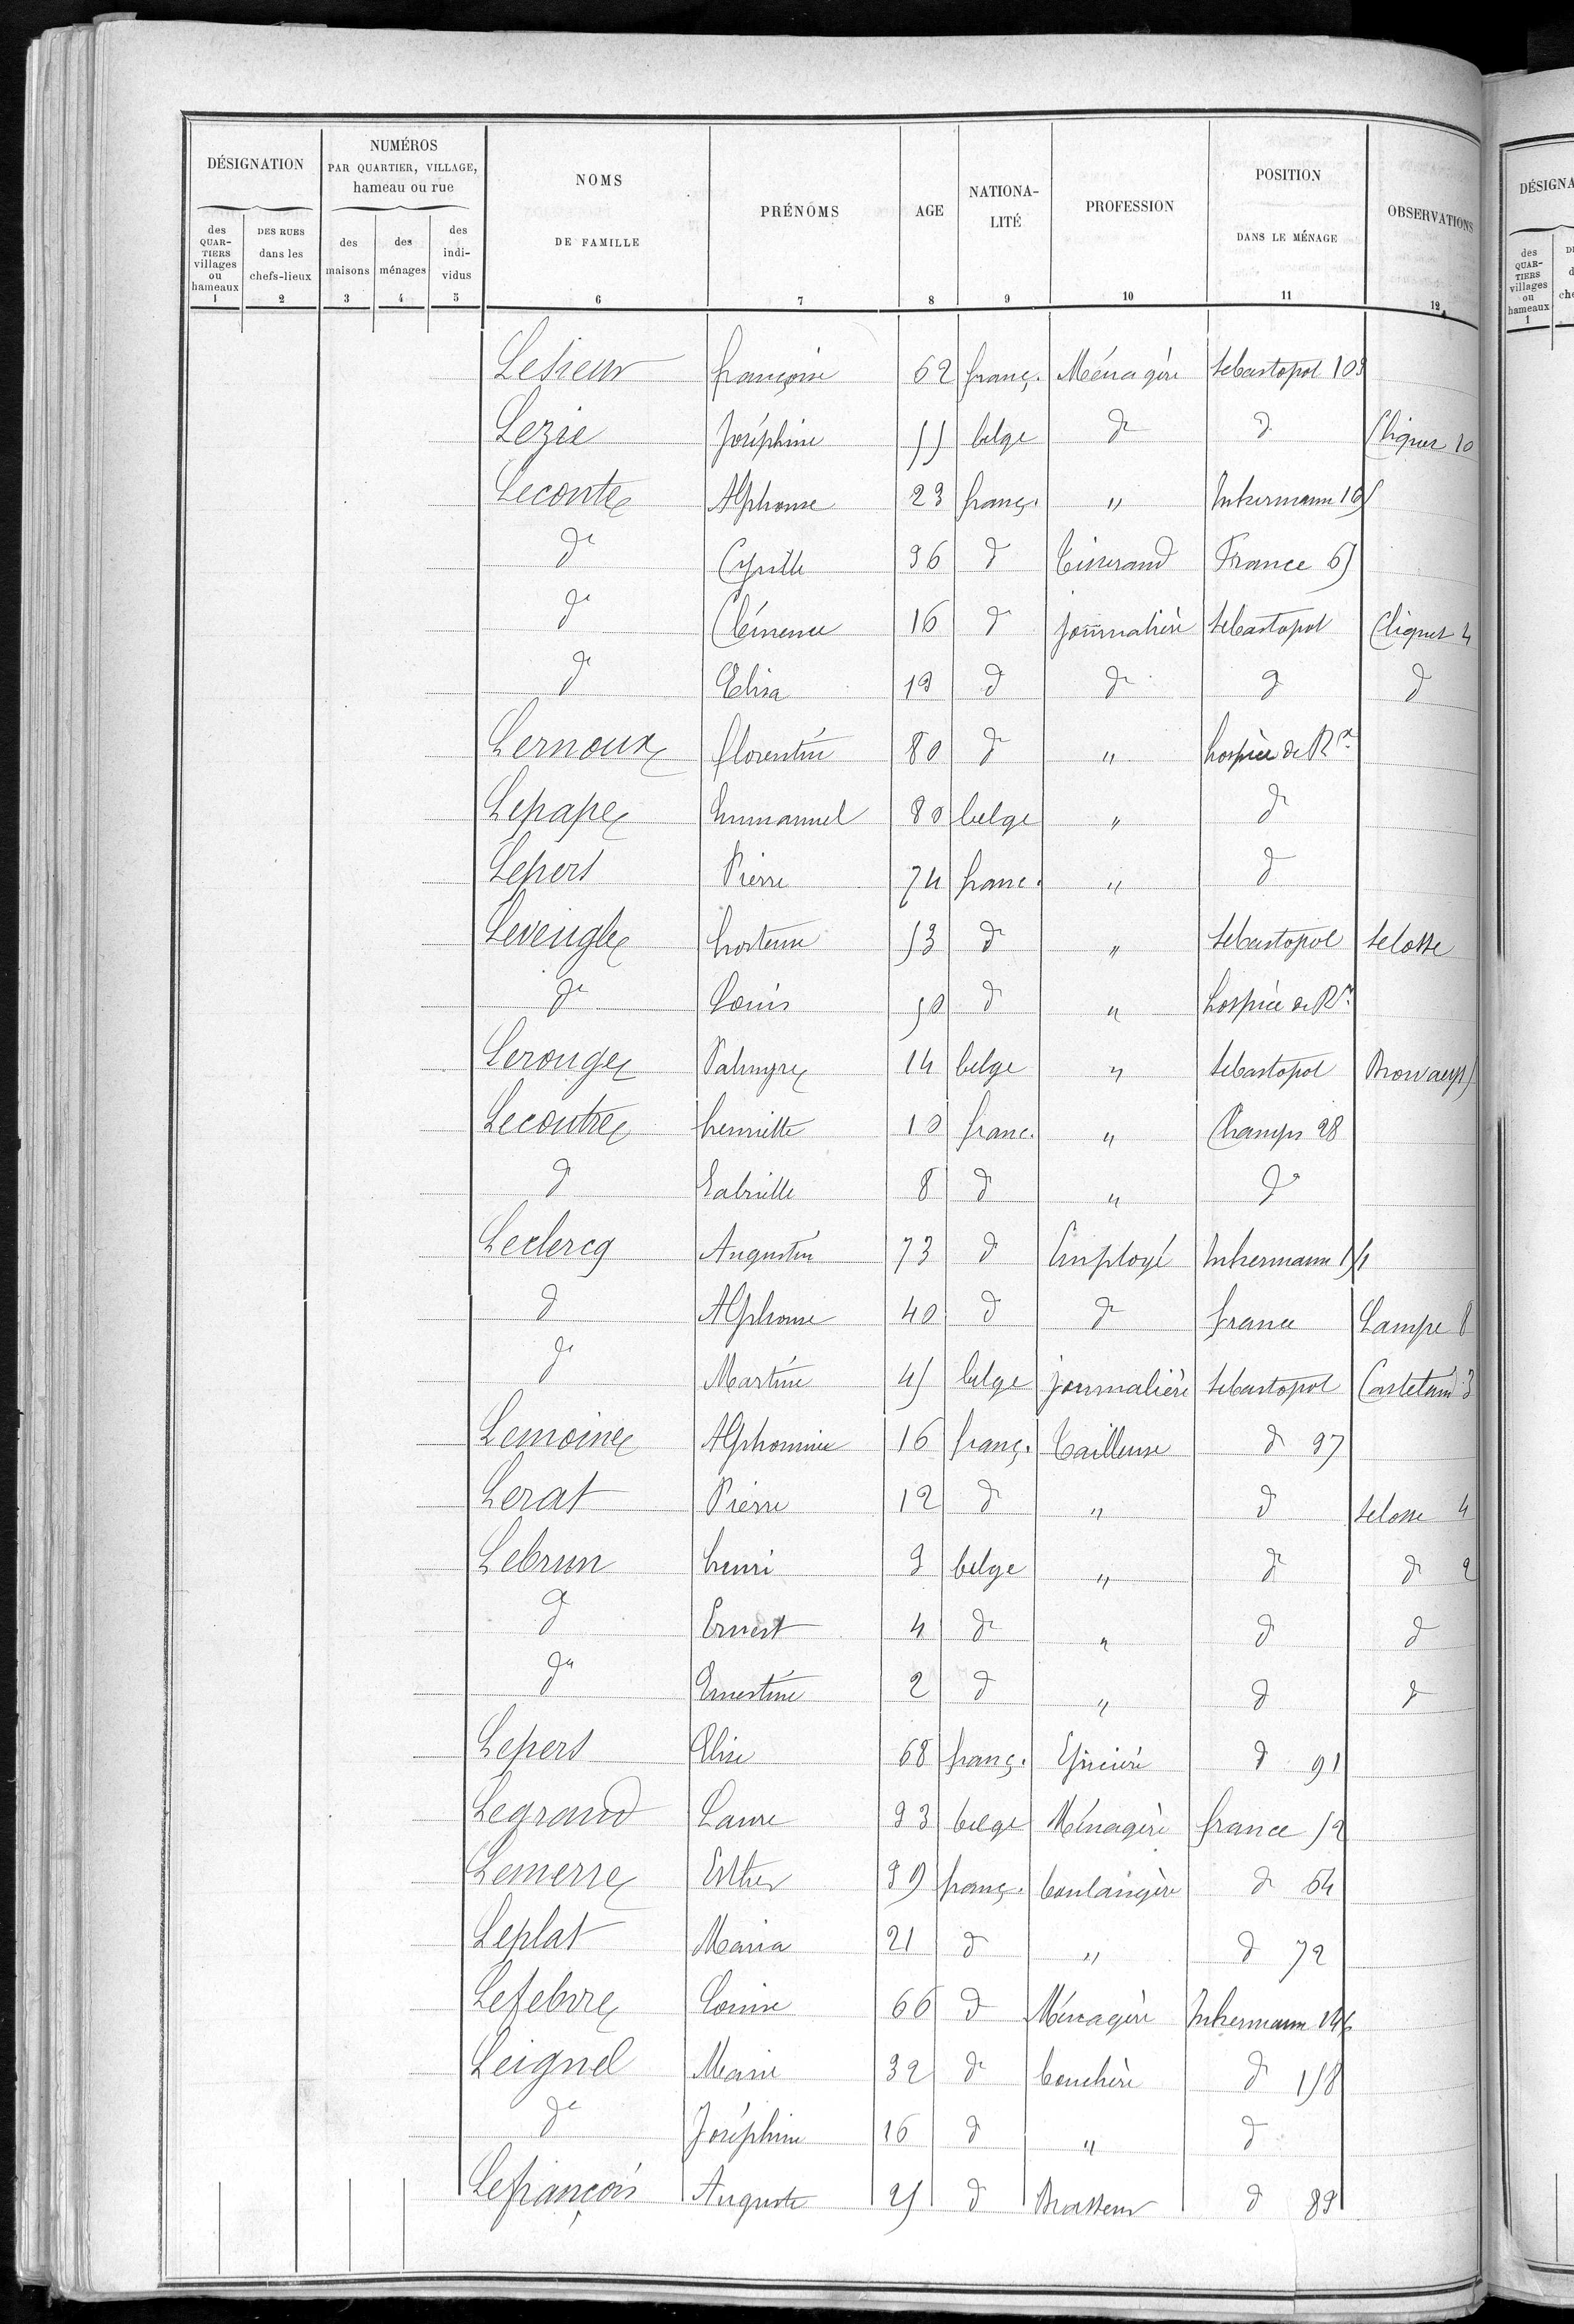 DÉSIGNATION
NUMÉROS
PAR QUARTIER, VILLAGE,
hameau ou rue
NOMS
DE FAMILLE
PRÉNOMS
AGE
NATIONA-
LITÉ
PROFESSION
POSITION
DANS LE MÉNAGE
OBSERVATIONS
des
QUAR-
TIERS
villages
ou
hameaux
DES RUES
dans les
chefs-lieux
des
maisons
des
ménages
des
indi-
vidus
1 2 3 4 5 6 7 8 9 10 11 12
françoise 62 franç. Ménagère Sebastopol 109
Lezie Joséphine 55 belge d° d° Cliquet 10
Leconte Alphonse 23 franç. " Inkermann
d° Cyrille 36 d° Tisserand France 65
d° Clémence 16 d° journalière Sebastopol Cliquet 4
d° Elisa 19 d° d° d° d°
Lernoux florentin 80 d° " hospice de Rx
Lepape Emmanuel 80 belge " d°
Lepers Pierre 74 franc. " d°
Leveugle hortense 53 d° " Sebastopol Selosse
d° Louis 50 d° " hospice de Rx
Lerouge Palmyre 14 belge " Sebastopol Browaeys
Lecoutre henriette 10 franc. " Champs 28
d° Gabrielle 8 d° " d°
Leclercq Augustin 73 d° Employé Inkermann
d° Alphonse 40 d° d° france Lampe 8
d° Martine 45 belge journalière Sebastopol Castelain 3
Lemoine Alphonsine 16 franç. Tailleuse d° 97
Lerat Pierre 12 d° " d° Selosse 4
Lebrun henri 9 belge " d° d° 2
d° Ernest 4 d° " d° d°
d° Ernestine 2 d° " d° d°
Lepers Elise 68 franç. Epicière d° 91
Legrand Laure 33 belge Ménagère france 52
Lemerre Esther 39 franç. boulangère d° 64
Leplat Maria 21 d° " d° 72
Lefebvre Louise 66 d° Ménagère Inkermann
Leignel Marie 32 d° bouchère d° 158
d° Joséphine 16 d° " d°
Lefrançois Auguste 25 d° Brasseur d° 89
DÉSIGNA
des
QUAR-
TIERS
villages
ou
hameaux
1